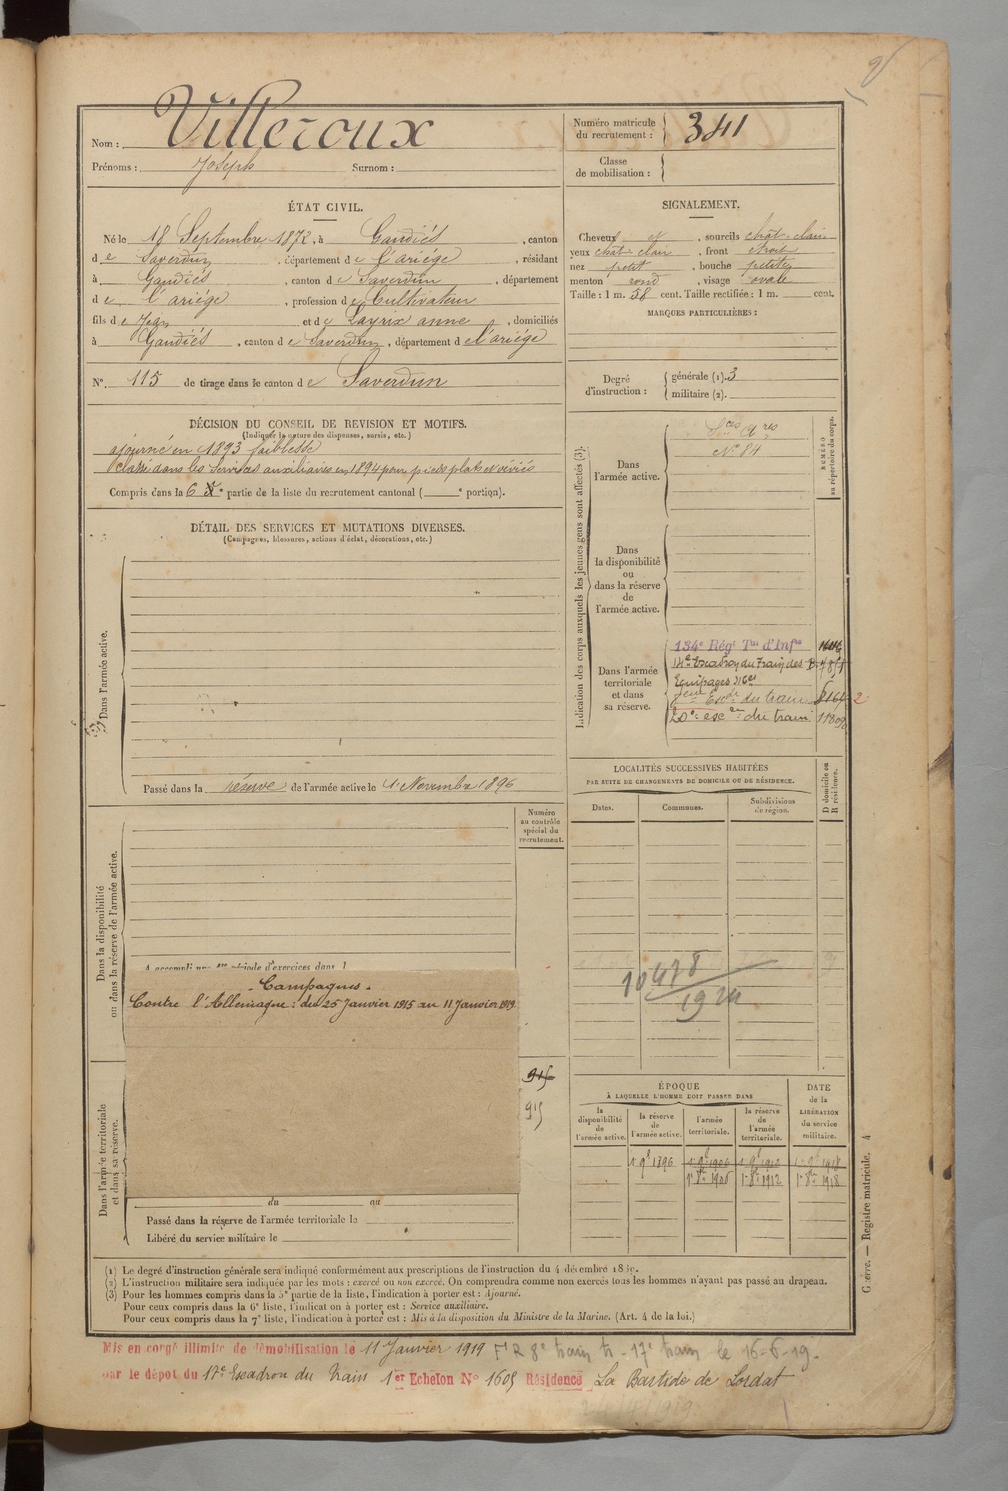 Nom : Villeroux
Prénoms : Joseph Surnom :
Numéro matricule
du recrutement : 341
Classe
de mobilisation :
ÉTAT CIVIL.
Né le 18 Septembre 1872, à Gaudiés, canton
de Saverdun, département de l'ariége, résidant
à Gaudiés, canton de Saverdun, département
de l'ariége, profession de Cultivateur
fils de Jean et de Layrix anne, domiciliés
à Gaudiés, canton de Saverdun, département de l'ariége
N° 115 de tirage dans le canton de Saverdun
SIGNALEMENT.
Cheveux et, sourcils chât. clair
yeux chât clair, front étroit
nez petit, bouche petite
menton rond, visage ovale
Taille : 1 m. 58 cent. Taille rectifiée : 1 m. cent.
MARQUES PARTICULIÈRES :
Degré
d'instruction :
générale (1). 3
militaire (2).
DÉCISION DU CONSEIL DE REVISION ET MOTIFS.
(Indiquer la nature des dispenses, sursis, etc.)
ajourné en 1893 faiblesse
Classé dans les services auxiliaires en 1894 pour pieds plats et déviés
Compris dans la 6e partie de la liste du recrutement cantonal ( e portion).
DÉTAIL DES SERVICES ET MUTATIONS DIVERSES.
(Campagnes, blessures, actions d'éclat, décorations, etc.)
Dans l'armée active.
Passé dans la réserve de l'armée active le 1er Novembre 1896
Indication des corps auxquels les jeunes gens sont affectés (3).
NUMÉRO
au répertoire du corps.
Dans
l'armée active.
Sces Aires
N° 84
Dans
la disponibilité
ou
dans la réserve
de
l'armée active.
Dans l'armée
territoriale
et dans
sa réserve.
134e Régt Tal d'Infie
17e Escadron du Train des
Equipages
20e escon du train
LOCALITÉS SUCCESSIVES HABITÉES
PAR SUITE DE CHANGEMENTS DE DOMICILE OU DE RÉSIDENCE.
D domicile ou
R résidence.
Dates.
Communes.
Subdivisions
de région.
10478
1924
Numéro
au contrôle
spécial du
recrutement.
Dans la disponibilité
ou dans la réserve de l'armée active.
A accompli une 1re période d'exercices dans l
- Campagnes -
Contre l'Allemagne : du 25 Janvier 1915 au 11 Janvier 1919
915
915
Dans l'armée territoriale
et dans sa réserve.
du au
Passé dans la réserve de l'armée territoriale le
Libéré du service militaire le
ÉPOQUE
À LAQUELLE L'HOMME DOIT PASSER DANS
DATE
de la
LIBÉRATION
du service
militaire.
la
disponibilité
de
l'armée active.
la réserve
de
l'armée active.
l'armée
territoriale.
la réserve
de
l'armée
territoriale.
1er 9bre 1896 1er 9bre 1906 1er 9bre 1912 1er 9bre 1918
1er 8bre 1906 1er 8bre 1912 1er 8bre 1918
(1) Le degré d'instruction générale sera indiqué conformément aux prescriptions de l'instruction du 4 décembre 1889.
(2) L'instruction militaire sera indiquée par les mots : exercé ou non exercé. On comprendra comme non exercés tous les hommes n'ayant pas passé au drapeau.
(3) Pour les hommes compris dans la 5e partie de la liste, l'indication à porter est : Ajourné.
Pour ceux compris dans la 6e liste, l'indication à porter est : Service auxiliaire.
Pour ceux compris dans la 7e liste, l'indication à porter est : Mis à la disposition du Ministre de la Marine. (Art. 4 de la loi.)
Guerre. — Registre matricule. 4
Mis en congé illimité de démobilisation le 11 Janvier 1919 le 16-6-19.
par le dépôt du 17e Escadron du Train 1er Echelon N° 1605 Résidence La Bastide de Lordat